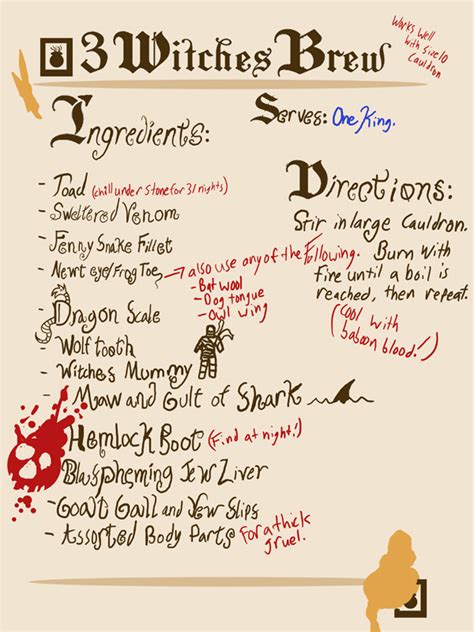 3 Witches Brew
Works Well
with Size 10
Cauldron
Serves: One King.
Ingredients:
- Toad (chill under Stone for 31 nights)
- Sweltered Venom
- Fenny Snake Fillet
- Newt eye/Frog Toe → also use any of the Following.
- Bat wool
- Dog tongue
- Owl wing
- Dragon Scale
- Wolf tooth
- Witches Mummy
- Maw and Gulf of Shark
- Hemlock Root (Find at night!)
- Blaspheming Jew Liver
- Goat Gall and Yew Slips
- Assorted Body Parts For a thick
gruel.
Directions:
Stir in large Cauldron.
Burn with
fire until a boil is
reached, then repeat.
(Cool with
baboon blood!)